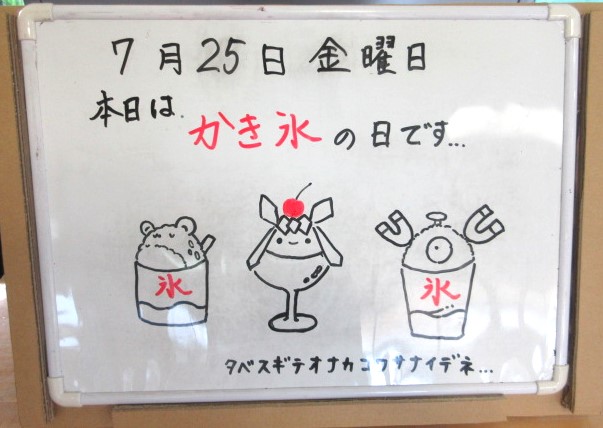 7月25日 金曜日
本日は かき氷の日です...
氷
氷
タベスギテオナカコワサナイデネ...